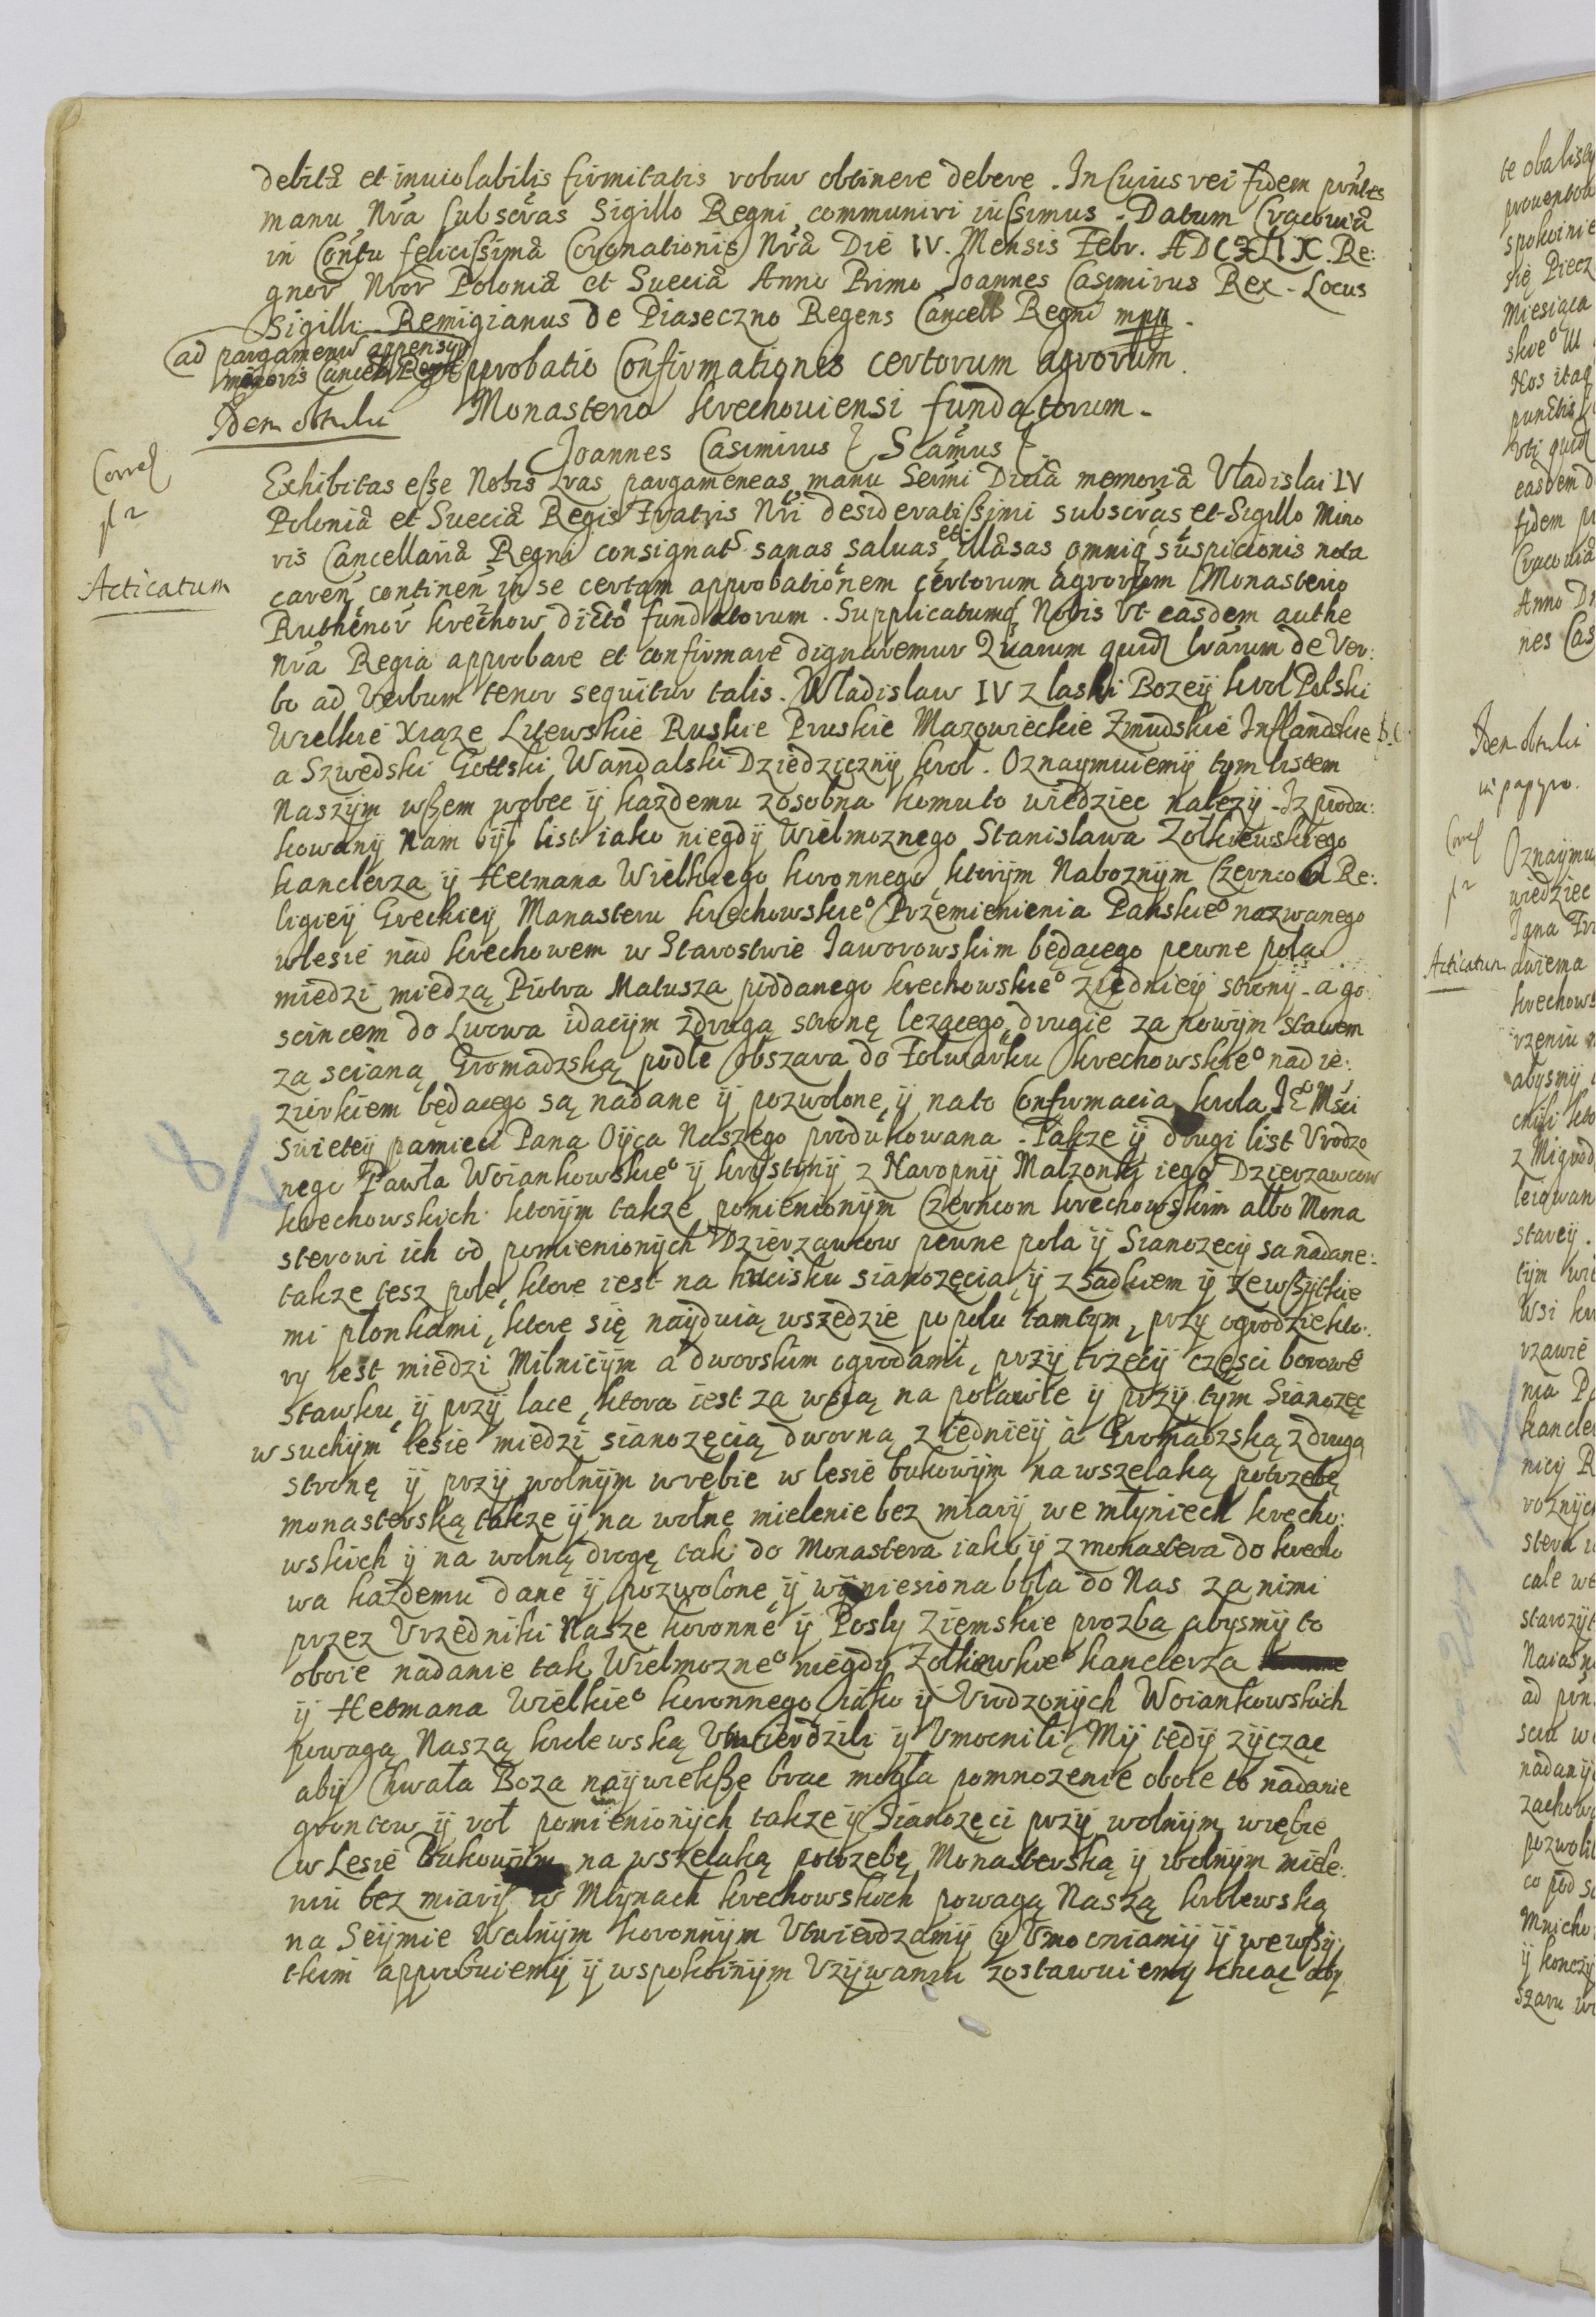 debitą et inviolabilis firmitatis robur obtinere debere. In Cuius rei fidem pr̃ntes
manu Nr̃a subscr̃as Sigillo Regni communiri iussimus. Datum Cracovią
in Con̄tu felicissimą Coronationis Nr̃ą Die IV. Mensis Febr. AD Re:
gnor Nror Polonią et Suecią Anno Primo Joannes Casimirus Rex. Locus
Sigilli Remigianus de Piaseczno Regens Cancell Regni mpp.
ad pargamenu appensu
minoris Cancell Regni
Approbatio Confirmationis certorum agrorum
Idem obtulit
Monasterio Krechoviensi fundatorum.
Joannes Casimirus Scamus
Correl
Exhibitas esse Nobis Lras pargameneas manu Sermi Divą memorią Vladislai IV
Polonią et Suecią Regis Fratris Nri desideratissimi subscr̃as et Sigillo Mino
ris Cancellarią Regni consignat sanas saluas et illąsas omniq suspicionis nota
Acticatum
caren continen in se certam approbationem certorum agrorum Monasterio
Ruthenor Krechow dicto fundatorum. Supplicatumq Nobis Vt easdem authe
nra Regia approbare et confirmare dignaremur Quarum quid lrarum de Ver:
bo ad Verbum tenor sequitur talis. Wladislaw IV z laski Bozeÿ Krol Polski
Wielkie Xiąze Litewskie Ruskie Pruskie Mazowieckie Zmudskie Inflandskie
a Szwedski Gottski Wandalski Dziedzicznÿ Krol. Oznaymuiemÿ tym listem
Naszÿm wszem wobec ÿ kazdemu zosobna komuto wiedziec nalezÿ. Iz produ:
kowanÿ Nam bÿł list iako niegdÿ Wielmoznego Stanislawa Zołkiewskiego
kanclerza ÿ Hetmana Wielkiego koronnego, ktorÿm Naboznÿm Czerncom Re:
ligieÿ Greckieÿ Manasteru Krechowskieᵒ Przemienienia Pańskieᵒ nazwanego
wlesie nad Krechowem w Starostwie Jaworowskim będącego pewne pola
miedzi miedzą Piotra Matusza poddanego Krechowskieᵒ ziednieÿ stronÿ a go
scincem do Lwowa idacÿm zdrugą stronę lezącego, drugie za nowÿm stawem
za scianą Gromadzską podle obszara do Folwarku Krechowskieᵒ nad ie:
ziorkiem będacego są nadane ÿ pozwolone, ÿ nato Confirmacia krola Jᵒ Msci
swieteÿ pamieci Pana Oÿca Naszego produkowana. Takze ÿ drugi list Vrodzo
nego Pawła Woiankowskieᵒ ÿ Krÿstÿnÿ z Naropnÿ Malzonkÿ iego Dzierzawcow
Krechowskich ktorÿm takze pomienionÿm Czerncom Krechowskim albo Mona
sterowi ich od pomienionÿch Dzierzawcow pewne pola ÿ Sianozecÿ sa nadane:
takze tesz pole, ktore iest na hucisku sianozęcia, ÿ z sadkiem ÿ zewszÿtkie
mi płonkami, ktore się naÿduią wszedzie po polu tamtym, przy ogrodzie kto:
ry iest miedzi Milnicÿm a dworskim ogrodami, przÿ trzeciÿ częsci borowe
stawku, ÿ przÿ lace, ktora iest za wsią na poławie ÿ przÿ tym Sianozęc
w suchÿm lesie miedzi sianozęcią dworną z iednieÿ a Gromadzską z drugą
stronę ÿ przÿ wolnÿm wrębie w lesie bukowÿm na wszelaką potrzebę
monasterską takze ÿ na wolne mielenie bez miarÿ we młyniech krecho:
wskich ÿ na wolną drogę tak do Monastera iako ÿ z monastera do krecho
wa kazdemu dane ÿ pozwolone, ÿ wÿniesiona była do Nas za nimi
przez Vrzedniki Nasze koronne ÿ Posly Ziemskie prozba abysmÿ to
oboie nadanie tak Wielmozneᵒ niegdy Zołkiewskieᵒ kanclerza
ÿ Hetmana Wielkieᵒ koronnego iako ÿ Vrodzonÿch Woiankowskich
powagą Naszą krolewską Vtwierdzili ÿ Vmocnili. Mÿ tedÿ zÿcząc
abÿ Chwała Boza naÿwieksze brac mogła pomnozenie oboie to nadanie
grontow ÿ rol pomienionÿch takze ÿ Sianozęci przÿ wolnÿm wrębie
w Lesie Bukowÿm na wszelaką potrzebę Monasterską ÿ wolnÿm miele:
niu bez miarÿ w Mlÿnach krechowskich powagą Naszą krolewską
na Seÿmie Walnÿm koronnÿm Vtwierdzamÿ ÿ Vmocniamÿ ÿ wewszÿ
tkim approbuiemÿ ÿ wspokoinÿm Vzÿwaniu zostawuiemy chcąc aby
Idem obtulit
in papyro.
Acticatum